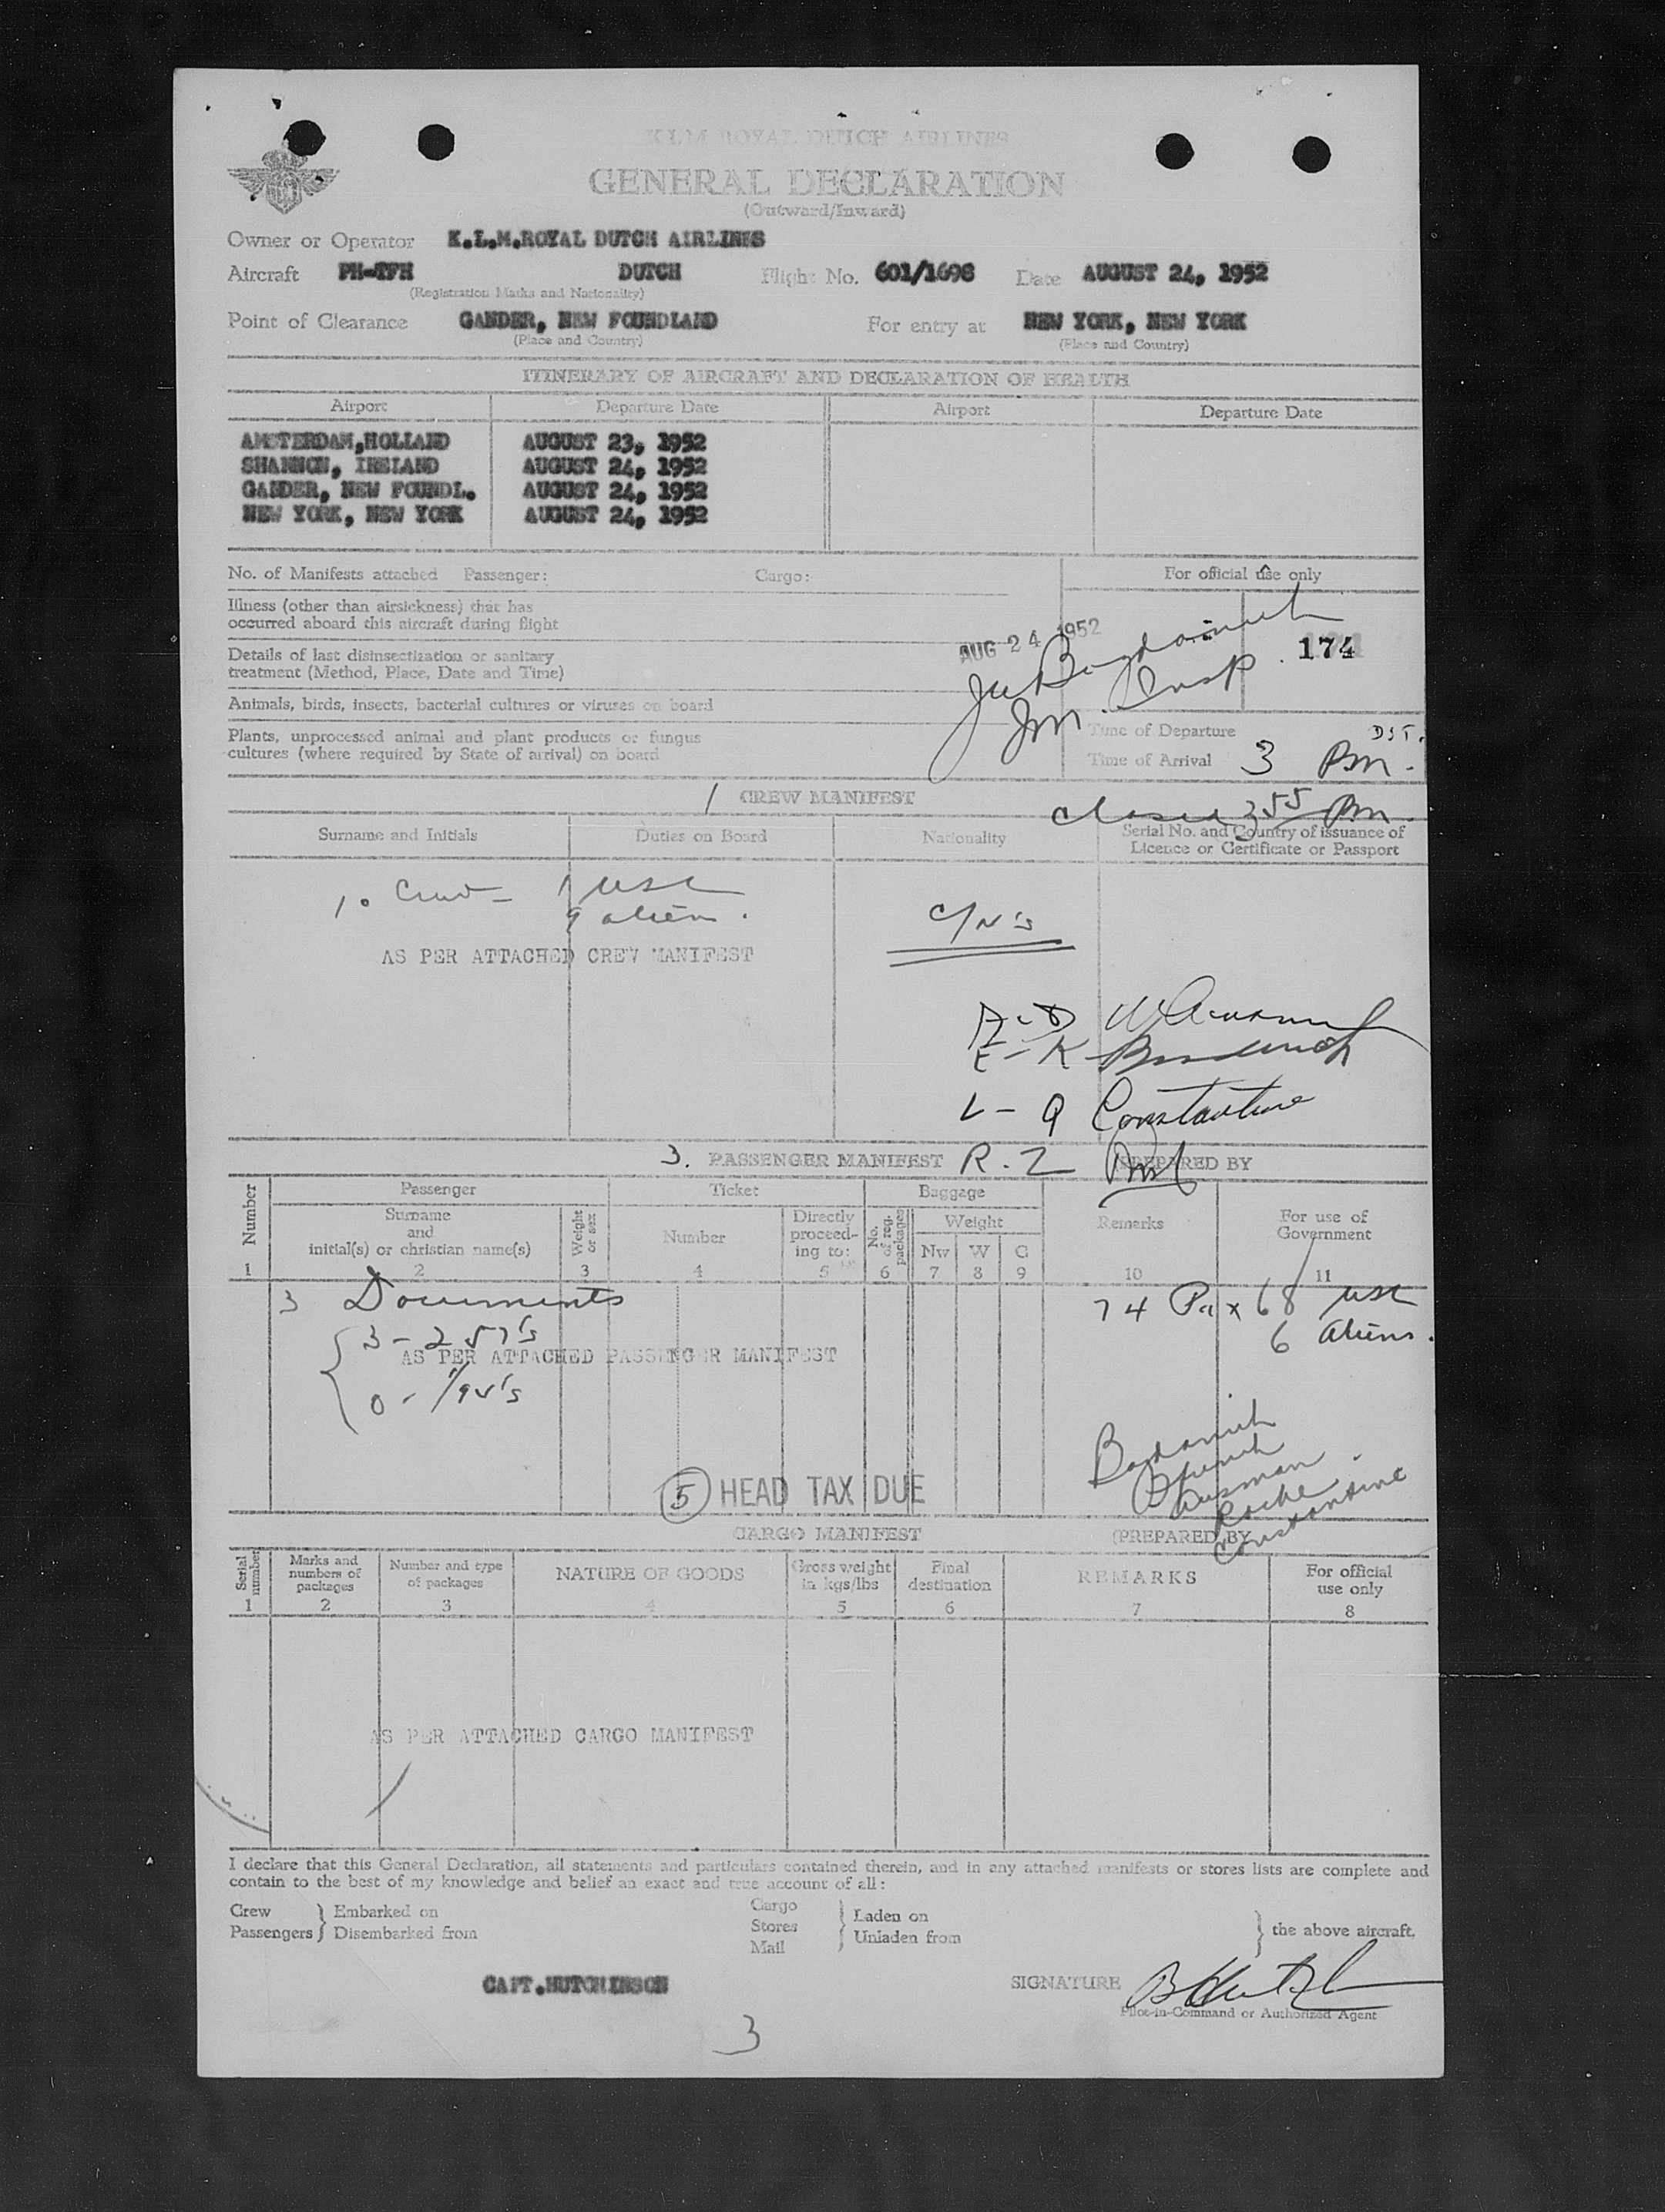 K L M ROYAL DUTCH AIRLINES
GENERAL DECLARATION
(Outward/Inward)
Owner or Operator K.L.M.ROYAL DUTCH AIRLINES
Aircraft PH-TFH DUTCH Flight No. 601/1698 Date AUGUST 24, 1952
(Registration Marks and Nationality)
Point of Clearance GANDER, NEW FOUNDLAND For entry at NEW YORK, NEW YORK
(Place and Country) (Place and Country)
ITINERARY OF AIRCRAFT AND DECLARATION OF HEALTH
Airport Departure Date Airport Departure Date
AMSTERDAM,HOLLAND AUGUST 23, 1952
SHANNON, IRELAND AUGUST 24, 1952
GANDER, NEW FOUNDL. AUGUST 24, 1952
NEW YORK, NEW YORK AUGUST 24, 1952
No. of Manifests attached Passenger: Cargo: For official use only
Illness (other than airsickness) that has
occurred aboard this aircraft during flight
AUG 24 1952 174
Details of last disinsectization or sanitary
treatment (Method, Place, Date and Time)
Insp
Animals, birds, insects, bacterial cultures or viruses on board
Imm.
Plants, unprocessed animal and plant products or fungus
cultures (where required by State of arrival) on board
Time of Departure DST.
Time of Arrival 3 PM.
1 CREW MANIFEST closed 3 55 PM.
Surname and Initials Duties on Board Nationality Serial No. and Country of issuance of
Licence or Certificate or Passport
10 Crew - 1 USC
9 alien.
C/N's
AS PER ATTACHED CREW MANIFEST
A-D
E-K
L-Q Constantine
3. PASSENGER MANIFEST R-Z (PREPARED BY
Number Passenger Ticket Baggage
Surname
and
initial(s) or christian name(s)
Weight or sex
Number
Directly
proceed-
ing to:
No. of reg. packages
Weight
Nw W C
Remarks
For use of
Government
1 2 3 4 5 6 7 8 9 10 11
3 Documents 74 Pax 68 USC
6 Aliens.
3 - 257's
AS PER ATTACHED PASSENGER MANIFEST
0 -
Ausman
Roche
Constantine
5 HEAD TAX DUE
CARGO MANIFEST (PREPARED BY
Serial number
Marks and
numbers of
packages
Number and type
of packages
NATURE OF GOODS
Gross weight
in kgs/lbs
Final
destination
REMARKS
For official
use only
1 2 3 4 5 6 7 8
AS PER ATTACHED CARGO MANIFEST
I declare that this General Declaration, all statements and particulars contained therein, and in any attached manifests or stores lists are complete and
contain to the best of my knowledge and belief an exact and true account of all:
Crew
Passengers
Embarked on
Disembarked from
Cargo
Stores
Mail
Laden on
Unladen from
the above aircraft.
CAPT.HUTCHINSON
SIGNATURE
Pilot-in-Command or Authorized Agent
3